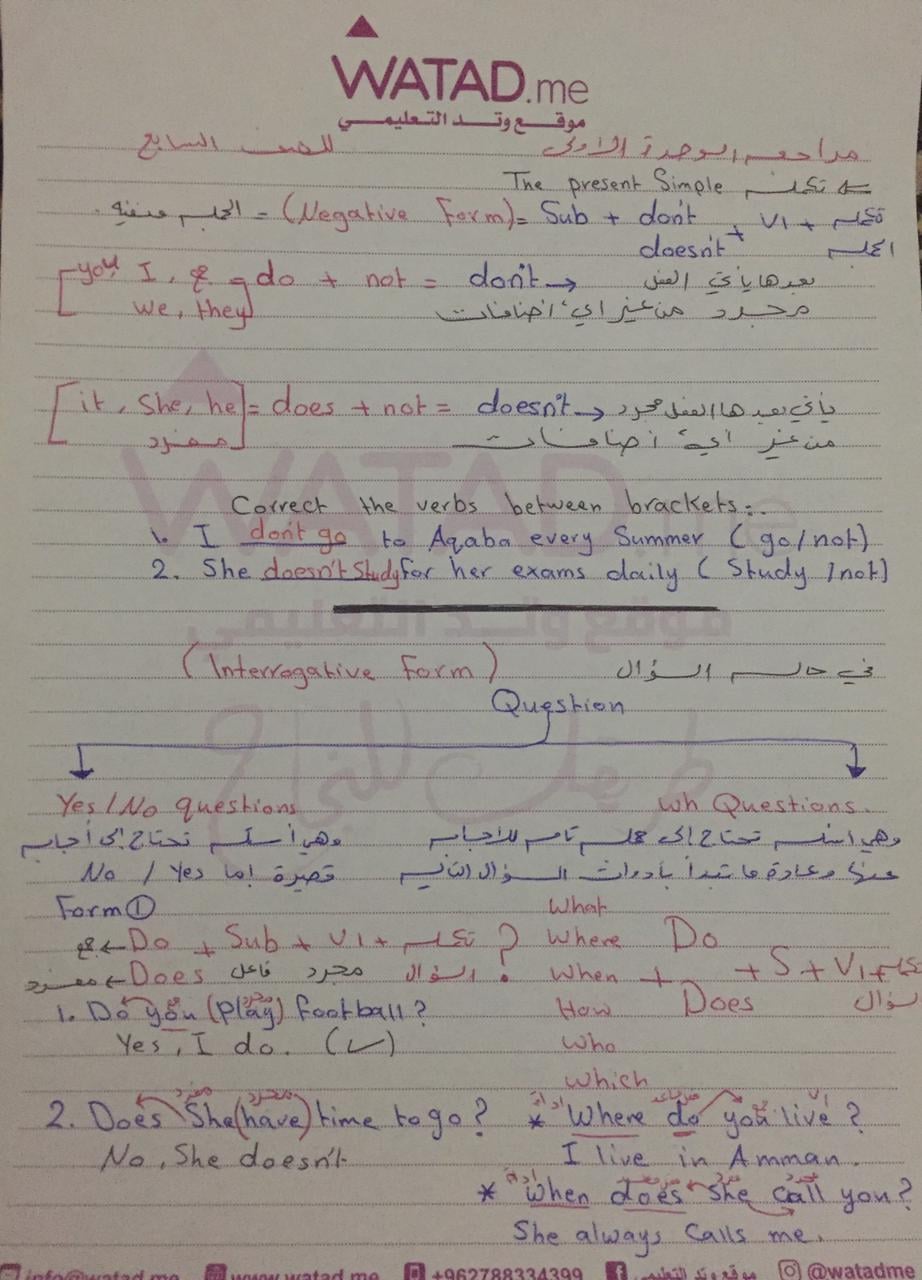 WATAD.me
موقع وتد التعليمي
مراجعة الوحدة الأولى للصف السابع
The present Simple تكملة
الجملة منفية = (Negative Form) = Sub + don't / doesn't + V1 + تكملة الجملة
[you, I, we, they] do + not = don't → بعدها يأتي الفعل
مجرد من غير اي اضافات
[it, She, he] = does + not = doesn't → يأتي بعدها الفعل مجرد
مفرد من غير اية اضافات
Correct the verbs between brackets:.
1. I don't go to Aqaba every Summer (go/not)
2. She doesn't Study for her exams daily (Study/not)
موقع وتد التعليمي
(Interrogative Form) في حالة السؤال
Question
طريقك للنجاح
Yes/No questions
وهي أسئلة تحتاج إلى أجابة
قصيرة إما Yes / No
Form ①
جمع ← Do + Sub + V1 + تكملة ?
مفرد ← Does فاعل مجرد السؤال
1. Do you (play) football?
Yes, I do. (✓)
2. Does She (have) time to go?
No, She doesn't
wh Questions.
وهي اسئلة تحتاج إلى جملة تامة للأجابة
عنها وعادة ما تبدأ بأدوات السؤال التالية
What
Where Do
When + + S + V1 + تكملة
How Does سؤال
Who
Which
* Where do you live?
I live in Amman.
* When does she call you?
She always Calls me.
info@watad.me www.watad.me +962788334399 موقع وتد التعليمي @watadme